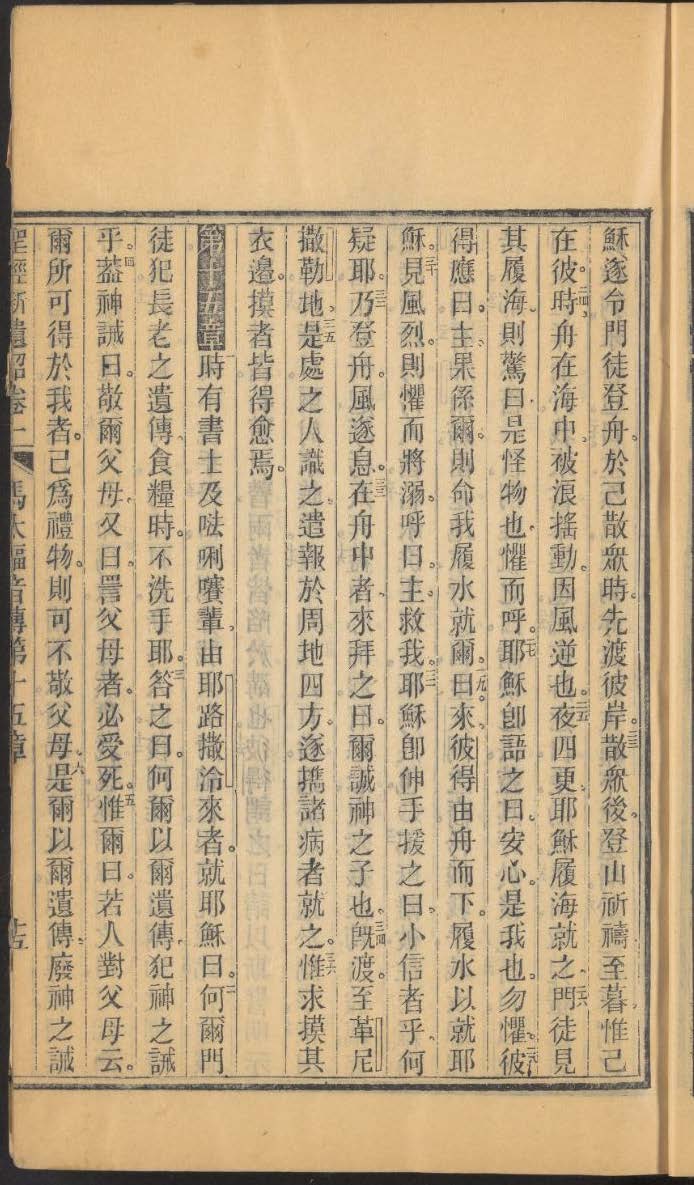 穌遂令門徒登舟。於己散衆時。先渡彼岸。二三散衆後。登山祈禱至暮惟己
在彼。二四時舟在海中。被浪搖動。因風逆也。二五夜四更耶穌履海就之。二六門徒見
其履海。則驚曰是怪物也。懼而呼。二七耶穌卽語之曰。安心。是我也。勿懼。二八彼
得應曰。主。果係爾。則命我履水就爾。二九曰。來。彼得由舟而下。履水以就耶
穌。三十見風烈。則懼而將溺。呼曰。主。救我。三一耶穌卽伸手援之曰。小信者乎。何
疑耶。三二乃登舟。風遂息。三三在舟中者。來拜之曰。爾誠神之子也。三四旣渡。至革尼
撒勒地。三五是處之人識之。遣報於周地四方。遂攜諸病者就之。三六惟求摸其
衣邊。摸者皆得愈焉。
第十五章 一時有書士及𠵽唎㘔輩。由耶路撒冷來者。就耶穌曰。二何爾門
徒犯長老之遺傳。食糧時。不洗手耶。三答之曰。何爾以爾遺傳。犯神之誡
乎。四蓋神誡曰。敬爾父母。又曰。詈父母者。必受死。五惟爾曰。若人對父母云。
爾所可得於我者。己爲禮物。則可不敬父母。六是爾以爾遺傳。廢神之誡
聖經新遺詔卷一 馬太福音傳第十五章